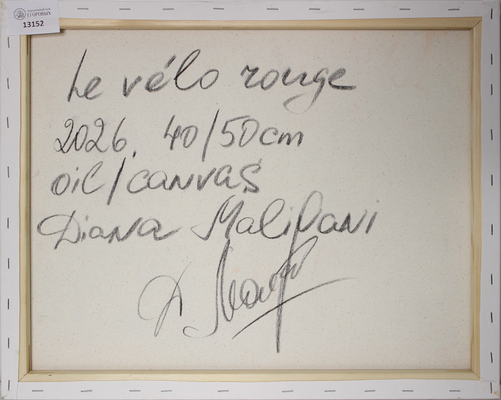 13152
Le vélo rouge
2026, 40/50cm
oil/canvas
Diana Malivani